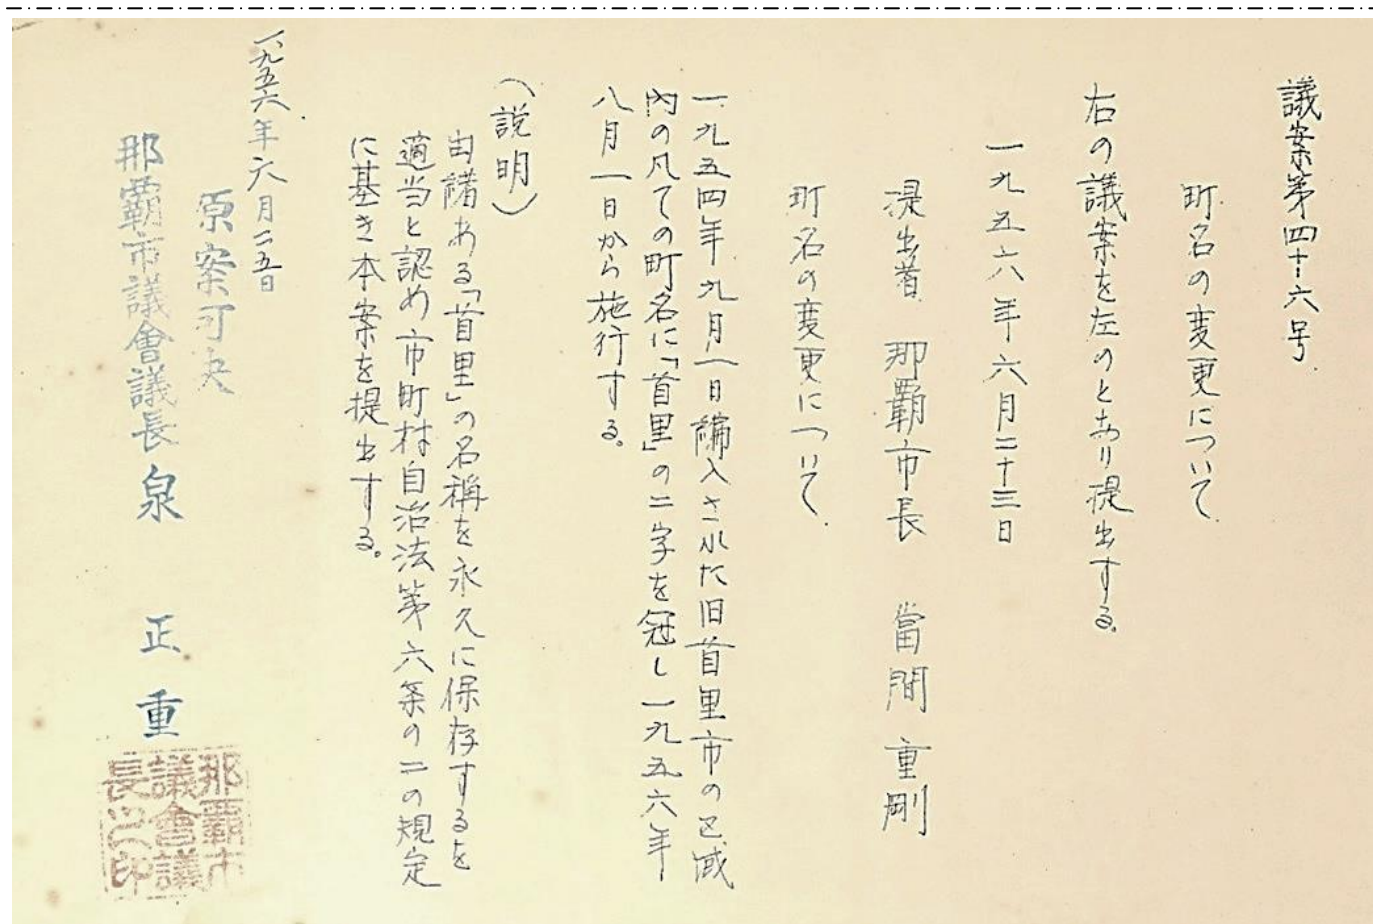 議案第四十六号
町名の変更について
右の議案を左のとおり提出する。
一九五六年六月二十三日
提出者 那覇市長 當間重剛
町名の変更について
一九五四年九月一日編入された旧首里市の区域
内の凡ての町名に「首里」の二字を冠し一九五六年
八月一日から施行する。
(説明)
由緒ある「首里」の名稱を永久に保存するを
適当と認め市町村自治法第六条の二の規定
に基き本案を提出する。
一九五六年六月二五日
原案可決
那覇市議會議長 泉 正重
那覇市
議會議
長之印